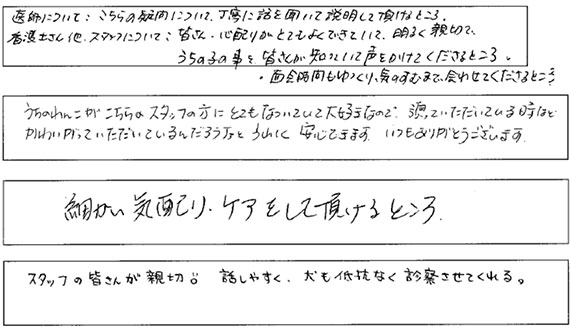 医師について：こちらの疑問について、丁寧に話を聞いて説明して頂けるところ。
看護士さん他、スタッフについて：皆さん、心配りがとてもよくできていて、明るく親切で、
うちの子の事を皆さんが知っていて声をかけてくださるところ。
・面会時間もゆっくり、気のすむまで、会わせてくださるところ
うちのわんこがこちらのスタッフの方にとてもなついていて大好きなので、預っていただいている時など
かわいがっていただいているんだろうなとうれしく安心できます。いつもありがとうございます。
細かい気配り、ケアをして頂けるところ。
スタッフの皆さんが親切。話しやすく、犬も低抗なく診察させてくれる。